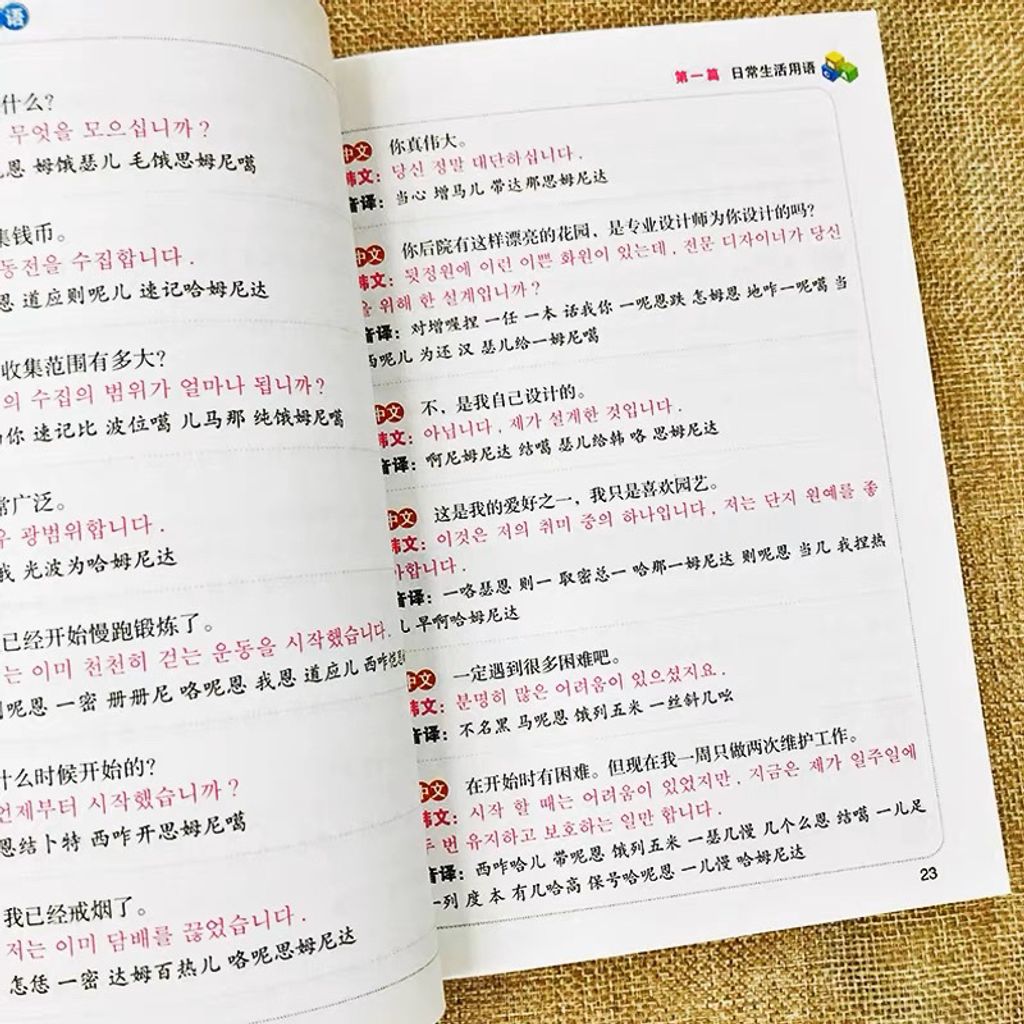 语
什么?
무엇을 모으십니까?
恩 姆饿瑟儿 毛饿思姆尼噶
集钱币。
동전을 수집합니다.
恩 道应则呢儿 速记哈姆尼达
收集范围有多大?
의 수집의 범위가 얼마나 됩니까?
你 速记比 波位噶 儿马那 纯饿姆尼噶
常广泛。
우 광범위합니다.
我 光波为哈姆尼达
已经开始慢跑锻炼了。
는 이미 천천히 걷는 운동을 시작했습니다.
呢恩 一密 册册尼 咯呢恩 我恩 道应儿 西咋
什么时候开始的?
언제부터 시작했습니까?
恩结卜特 西咋开思姆尼噶
我已经戒烟了。
저는 이미 담배를 끊었습니다.
怎恁 一密 达姆百热儿 咯呢思姆尼达
第一篇 日常生活用语
中文 你真伟大。
韩文: 당신 정말 대단하십니다.
音译: 当心 增马儿 带达那思姆尼达
中文 你后院有这样漂亮的花园，是专业设计师为你设计的吗?
韩文: 뒷정원에 이런 이쁜 화원이 있는데, 전문 디자이너가 당신
을 위해 한 설계입니까?
音译: 对增喔捏 一任 一本 话我你 一呢恩跌 怎姆恩 地咋一呢噶 当
西呢儿 为还 汉 瑟儿给一姆尼噶
中文 不，是我自己设计的。
韩文: 아닙니다, 제가 설계한 것입니다.
音译: 啊尼姆尼达 结噶 瑟儿给韩 咯 思姆尼达
中文 这是我的爱好之一，我只是喜欢园艺。
韩文: 이것은 저의 취미 중의 하나입니다, 저는 단지 원예를 좋
아합니다.
音译: 一咯瑟恩 则一 取密总一 哈那一姆尼达 则呢恩 当几 我捏热
儿 早啊哈姆尼达
中文 一定遇到很多困难吧。
韩文: 분명히 많은 어려움이 있으셨지요.
音译: 不名黑 马呢恩 饿列五米 一丝斜几吆
中文 在开始时有困难。但现在我一周只做两次维护工作。
韩文: 시작 할 때는 어려움이 있었지만, 지금은 제가 일주일에
두 번 유지하고 보호하는 일만 합니다.
音译: 西咋哈儿 带呢恩 饿列五米 一瑟几慢 几个么恩 结噶 一儿足
一列 度 本 有几哈高 保号哈呢恩 一儿慢 哈姆尼达
23